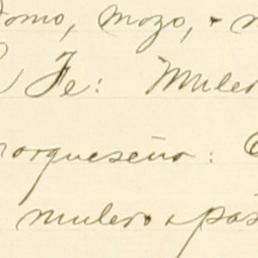 domo, mozo, + 
Fe: Muler
orqueseño:
mulero + pas